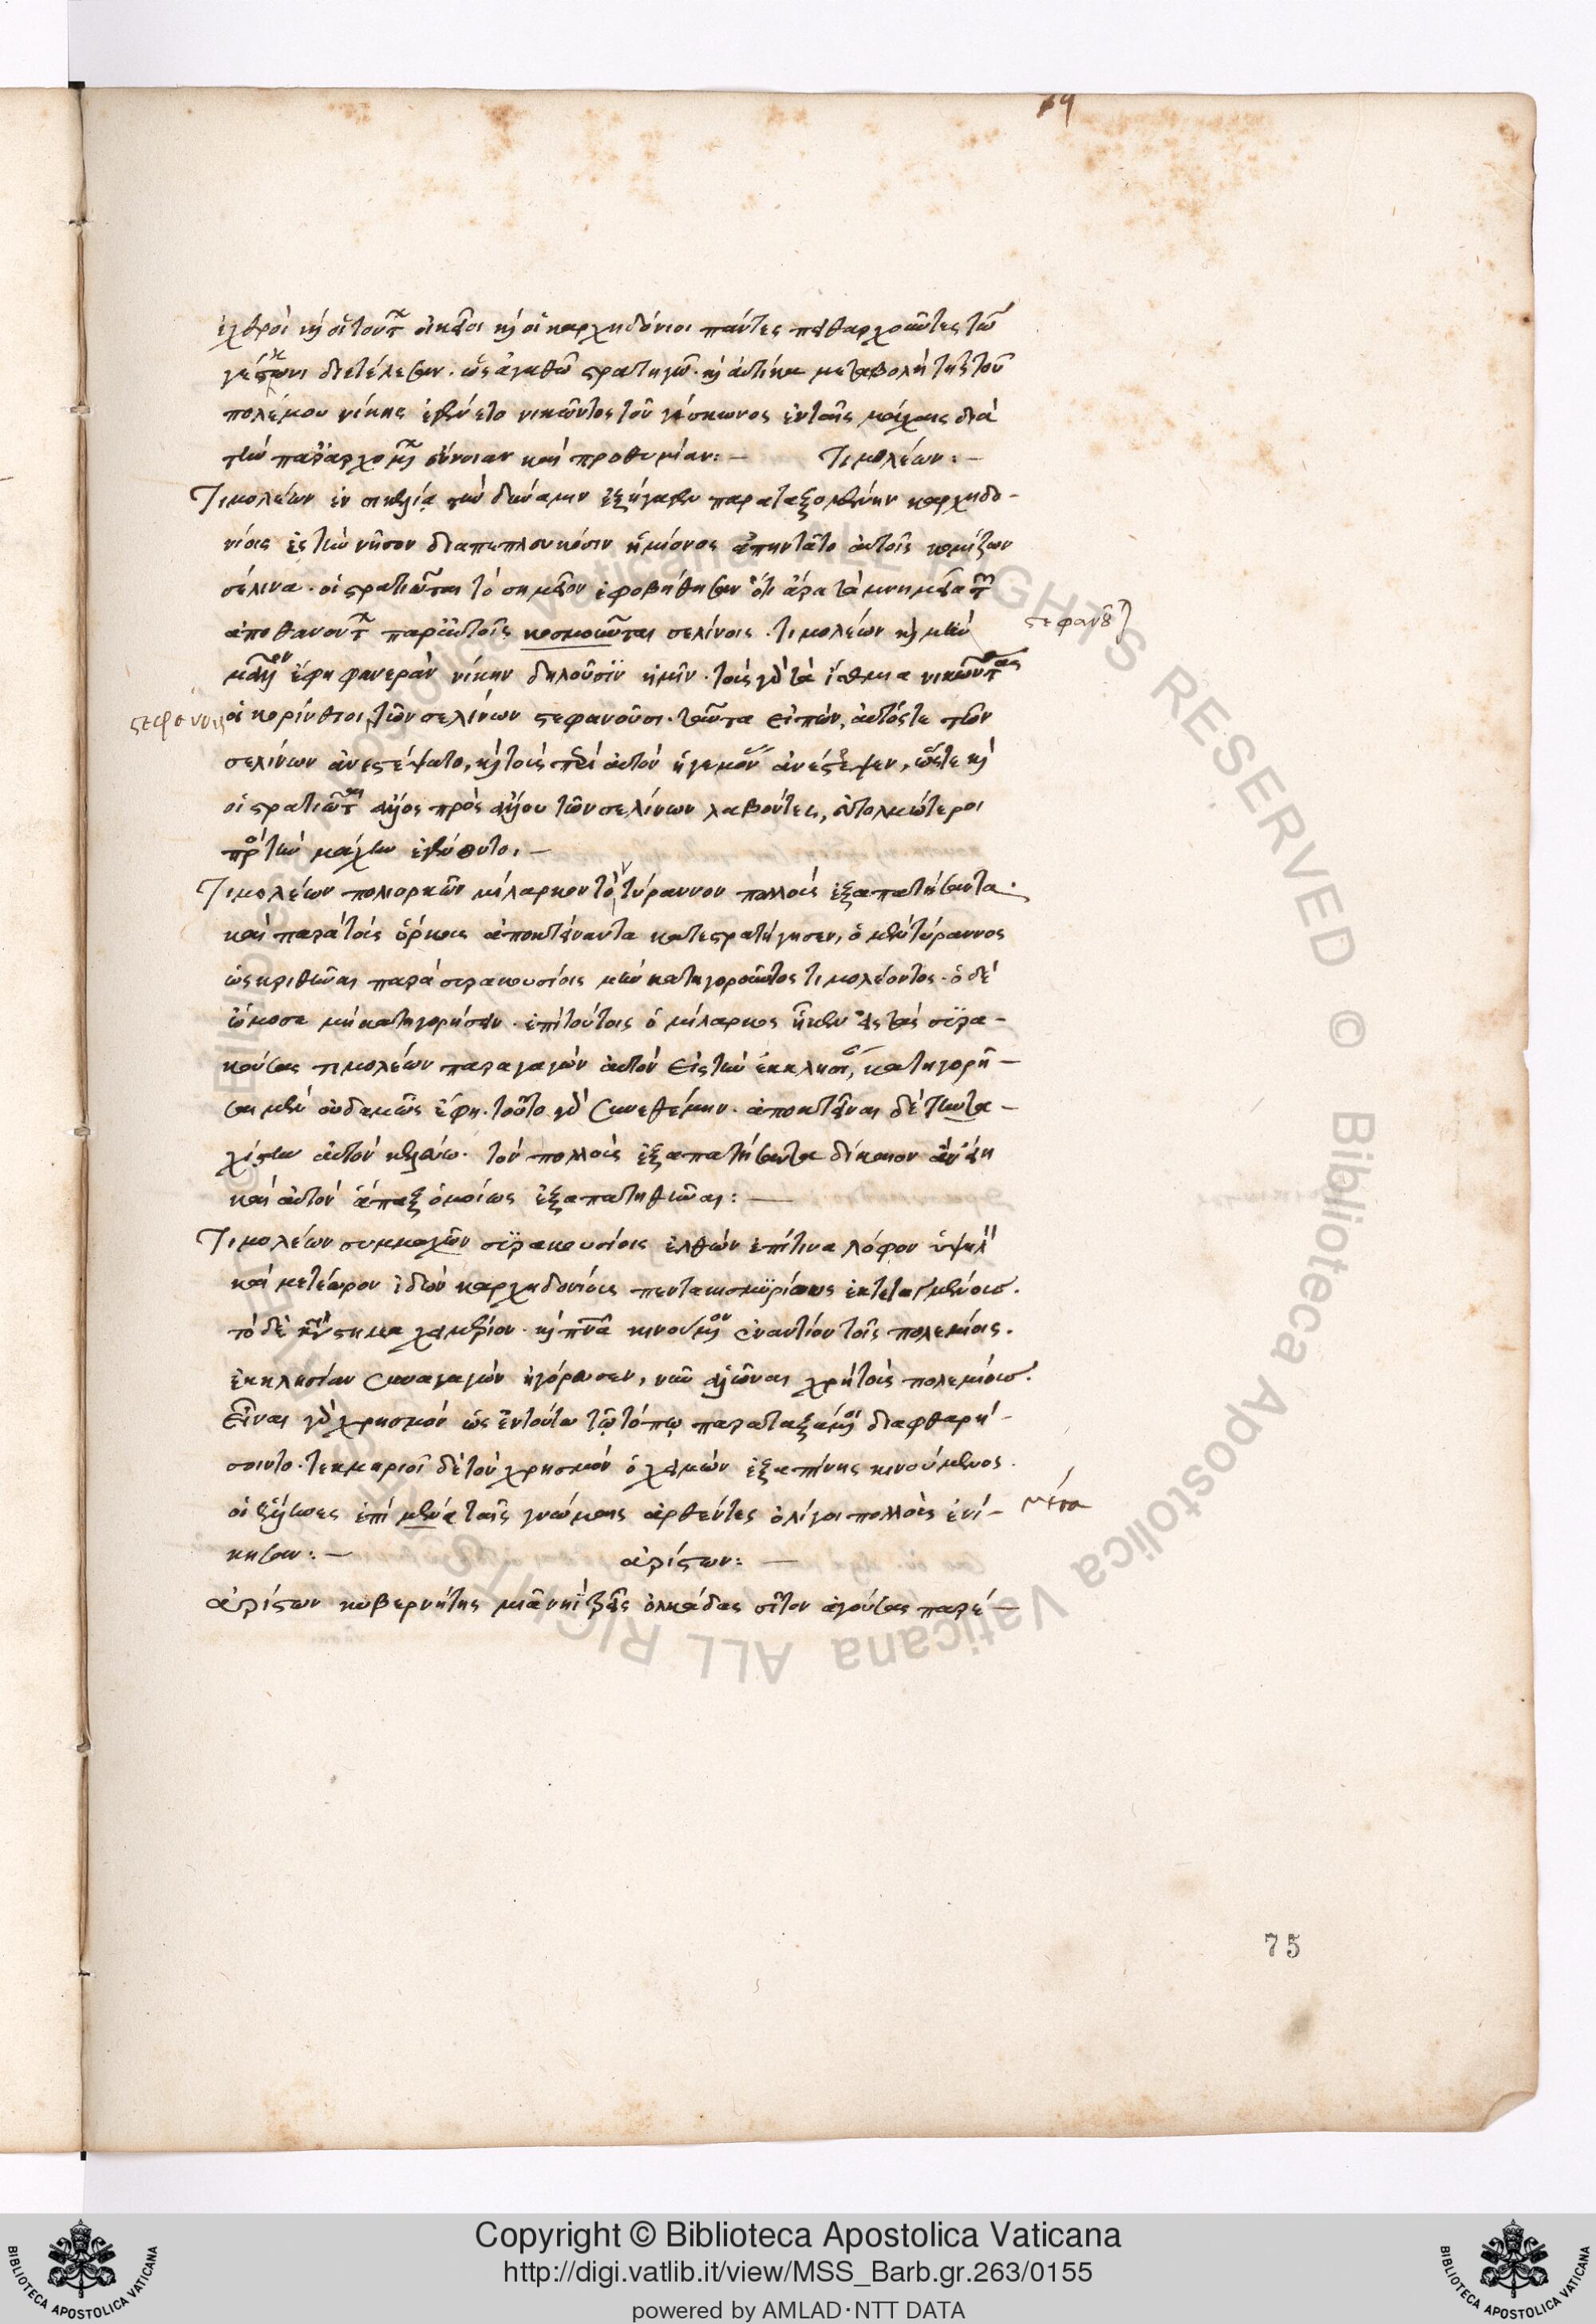 69
ἐχθροὶ καὶ οἱ τούτων οἰκεῖοι καὶ οἱ καρχηδόνιοι πάντες πειθαρχοῦντες τῶ
γέσκωνι διετέλεσαν. ὡς ἀγαθῶ στρατηγῶ. καὶ αὐτίκα μεταβολὴ τῆς τοῦ
πολέμου νίκης ἐγένετο νικῶντος τοῦ γέσκωνος ἐν ταῖς μάχαις διὰ
τὴν παρὰ ἀρχομένων εὔνοιαν καὶ προθυμίαν: – Τιμολέων: –
Τιμολέων ἐν σικελία τὴν δύναμιν ἐξήγαγεν παραταξομένην καρχηδο-
νίοις ἐς τὴν νῆσον διαπεπλευκόσιν ἡμίονος ἀπηντᾶτο αὐτοῖς κομίζων
σέλινα. οἱ στρατιῶται τὸ σημεῖον ἐφοβήθησαν ὅτι ἄρα τὰ μνημεῖα τῶν
ἀποθανόντων παρ' αὐτοῖς κοσμοῦνται σελίνοις. τιμολέων καὶ μὴν
στεφανοῦται
μᾶλλον ἔφη φανερὰν νίκην δηλοῦσιν ἡμῖν. τοὺς γὰρ τὰ ἴσθμια νικῶντας
οἱ κορίνθιοι τῶν σελίνων στεφανοῦσι. ταῦτα εἰπὼν, αὐτός τε τῶν
σελίνων ἀνεστέψατο, καὶ τοὺς περὶ αὐτὸν ἡγεμόνας ἀνέστεψεν, ὥστε καὶ
οἱ στρατιῶται ἄλλος πρὸς ἄλλου τῶν σελίνων λαβόντες, εὐτολμώτεροι
πρὸς τὴν μάχην ἐγένοντο. –
Τιμολέων πολιορκῶν μίλαρκον τὸν τύραννον πολλοὺς ἐξαπατήσαντα.
καὶ παρὰ τοὺς ὅρκους ἀποκτείναντα κατεστρατήγησεν, ὁ μὲν τύραννος
ὡς κριθῆναι παρὰ συρακουσίοις μὴν κατηγοροῦντος τιμολέοντος. ὁ δὲ
ὤμοσε μὴ κατηγορήσειν. ἐπὶ τούτοις ὁ μίλαρκος ἧκεν εἰς τὰς συρα-
κούσας τιμολέων παραγαγὼν αὐτὸν εἰς τὴν ἐκκλησίαν, κατηγορῆ –
σαι μὲν οὐδαμῶς ἔφη. τοῦτο γὰρ συνεθέμην. ἀποκτεῖναι δὲ τὴν τα –
χίστην αὐτὸν κελεύω. τὸν πολλοὺς ἐξαπατήσαντα δίκαιον ἂν εἴη
καὶ αὐτὸν ἅπαξ ὁμοίως ἐξαπατηθῆναι: –
Τιμολέων συμμαχῶν συρακουσίοις ἐλθὼν ἐπί τινα λόφον ὑψηλὸν
καὶ μετέωρον ἰδὼν καρχηδονίους πεντακισμυρίους ἐκτεταγμένους.
ἐκκλησίαν συναγαγὼν ἠγόρευσεν, νῦν ἁλῶναι χρὴ τοὺς πολεμίους.
εἶναι γὰρ χρησμὸν ὡς ἐν τούτω τῶ τόπω παραταξάμενοι διαφθαρή –
σοιντο. τεκμαριοῖ δὲ τὸν χρησμὸν ὁ χειμὼν ἐξαπίνης κινούμενος.
κησαν: – ἀρίστων: –
ἀρίστων κυβερνήτης μιᾶ νηὶ τρεῖς ὁλκάδας σῖτον ἀγούσας παρέ –
75
Copyright © Biblioteca Apostolica Vaticana
http://digi.vatlib.it/view/MSS_Barb.gr.263/0155
powered by AMLAD·NTT DATA
BIBLIOTECA APOSTOLICA VATICANA
BIBLIOTECA APOSTOLICA VATICANA